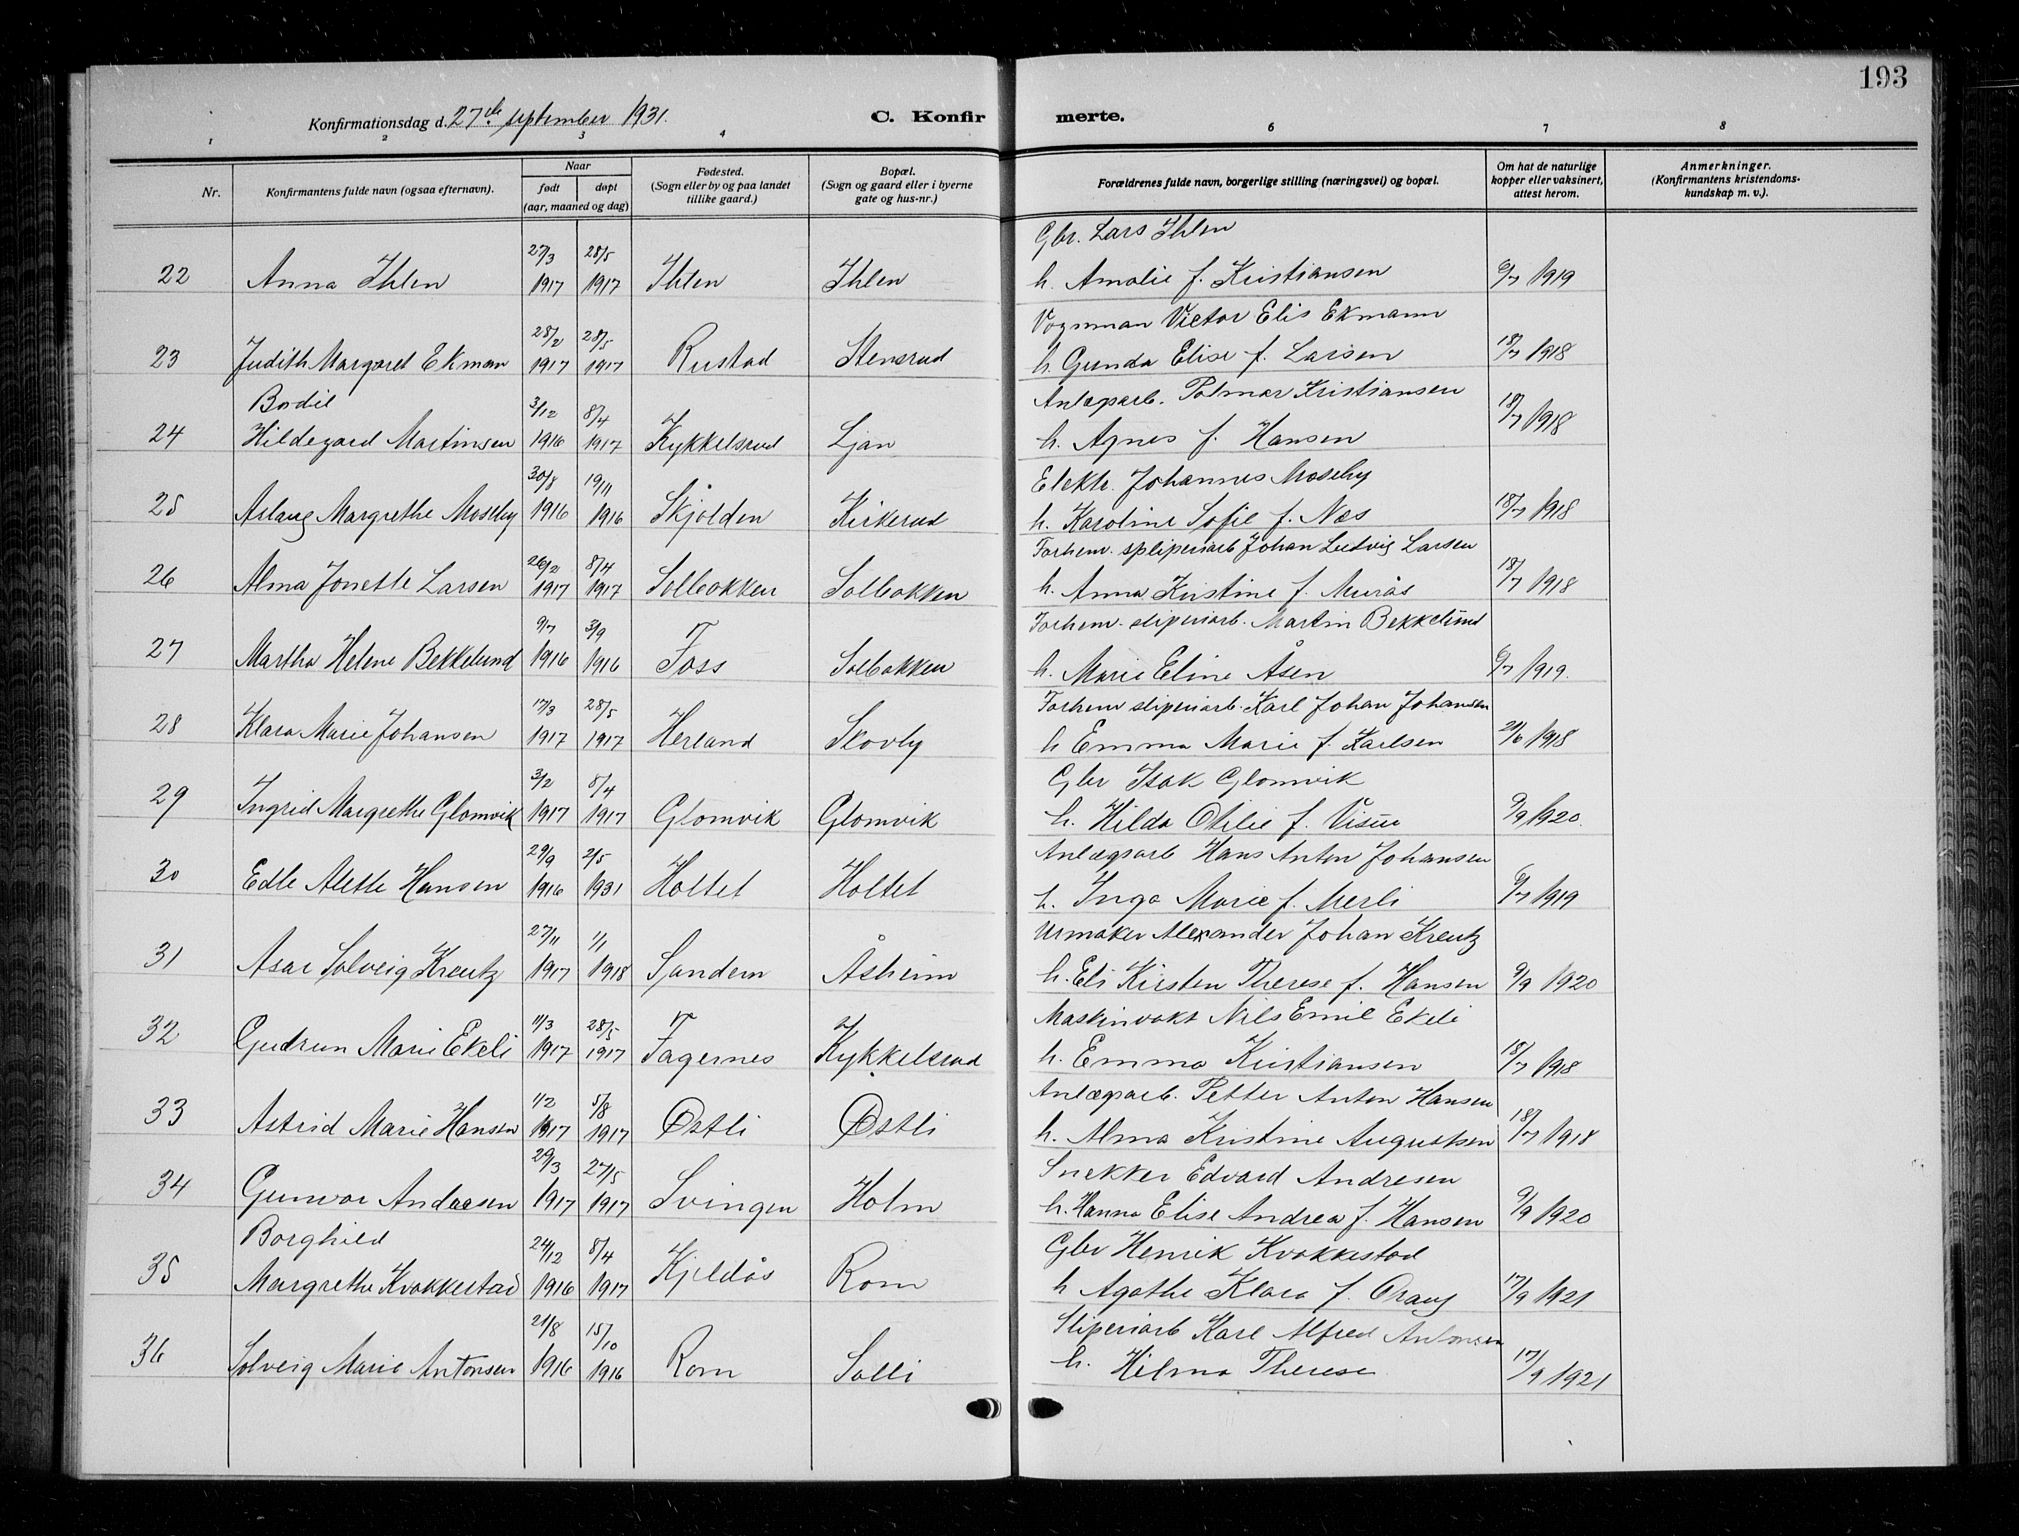 193
Konfirmationsdag d. 27de september 1931.
C. Konfirmerte.
1 2 3 4 6 7 8
Nr.
Konfirmantens fulde navn (ogsaa efternavn).
Naar
født døpt
(aar, maaned og dag)
Fødested.
(Sogn eller by og paa landet
tillike gaard.)
Bopæl.
(Sogn og gaard eller i byerne
gate og hus-nr.)
Forældrenes fulde navn, borgerlige stilling (næringsvei) og bopæl.
Om hat de naturlige
kopper eller vaksinert,
attest herom.
Anmerkninger.
(Konfirmantens kristendoms-
kundskap m. v.).
27/3 28/5 Gbr. Lars Ihlen
22 Anna Ihlen 1917 1917 Ihlen Ihlen h. Amalie f. Kristiansen 6/7 1919
28/2 28/5 Vognman Victor Elis Ekmann
23 Judith Margaret Ekman 1917 1917 Rustad Stensrud h. Gunda Elise f. Larsen 18/7 1918
Bordil 3/12 8/4 Anlægsarb. Palmar Kristiansen
24 Hildegard Martinsen 1916 1917 Kykkelsrud Ljan h. Agnes f. Hansen 18/7 1918
30/8 19/11 Elektr. Johannes Moseby
25 Aslaug Margrethe Moseby 1916 1916 Skjolden Kirkerud h. Karoline Sofie f. Næs 18/7 1918
26/2 8/4 Forhenv. spliperiarb Johan Ludvig Larsen
26 Alma Jonette Larsen 1917 1917 Solbakken Solbakken h. Anna Kristine f. Murås 18/7 1918
9/7 3/9 Forhenv. sliperiarb. Martin Bekkelund
27 Martha Helene Bekkelund 1916 1916 Foss Solbakken h. Marie Eline Åsen 6/7 1919.
17/3 28/5 Forhenv sliperiarb. Karl Johan Johansen
28 Klara Marie Johansen 1917 1917 Herland Skovly h Emma Marie f. Karlsen 21/6 1918
3/2 8/4 Gbr Isak Glomvik
29 Ingrid Margrethe Glomvik 1917 1917 Glomvik Glomvik h. Hilda Otilie f. 9/9 1920.
29/9 2/5 Anlægsarb Hans Anton Johansen
30 Edle Alette Hansen 1916 1931 Holtet Holtet h. Inga Marie f. Merli 6/7 1919
27/11 1/1 Urmaker Alexander Johan Kreutz
31 Solveig Kreutz 1917 1918 Sandem Åsheim h. Eli Kirsten Therese f. Hansen 9/9 1920
11/3 28/5 Maskinvakt Nils Emil Ekeli
32 Gudrun Marie Ekeli 1917 1917 Fagernes Kykkelsrud h. Emma Kristiansen 18/7 1918
1/2 5/8 Anlægsarb. Petter Anton Hansen
33 Astrid Marie Hansen 1917 1917 Østli Østli h. Alma Kristine Augustsen 18/7 1918
29/3 27/5 Snekker Edvard Andresen
34 Gunvor Andresen 1917 1917 Svingen Holm h. Hanna Elise Andrea f. Hansen 9/9 1920
Borghild 24/12 8/4 Gbr Henrik Kvakkestad
35 Margrethe Kvakkestad 1916 1917 Kjeldås Rom h Agathe Klara f. Oraug 17/9 1921
21/8 15/10 Sliperiarb Karl Alfred Antonsen
36 Solveig Marie Antonsen 1916 1916 Rom Solli h. Hilma Therese 17/9 1921